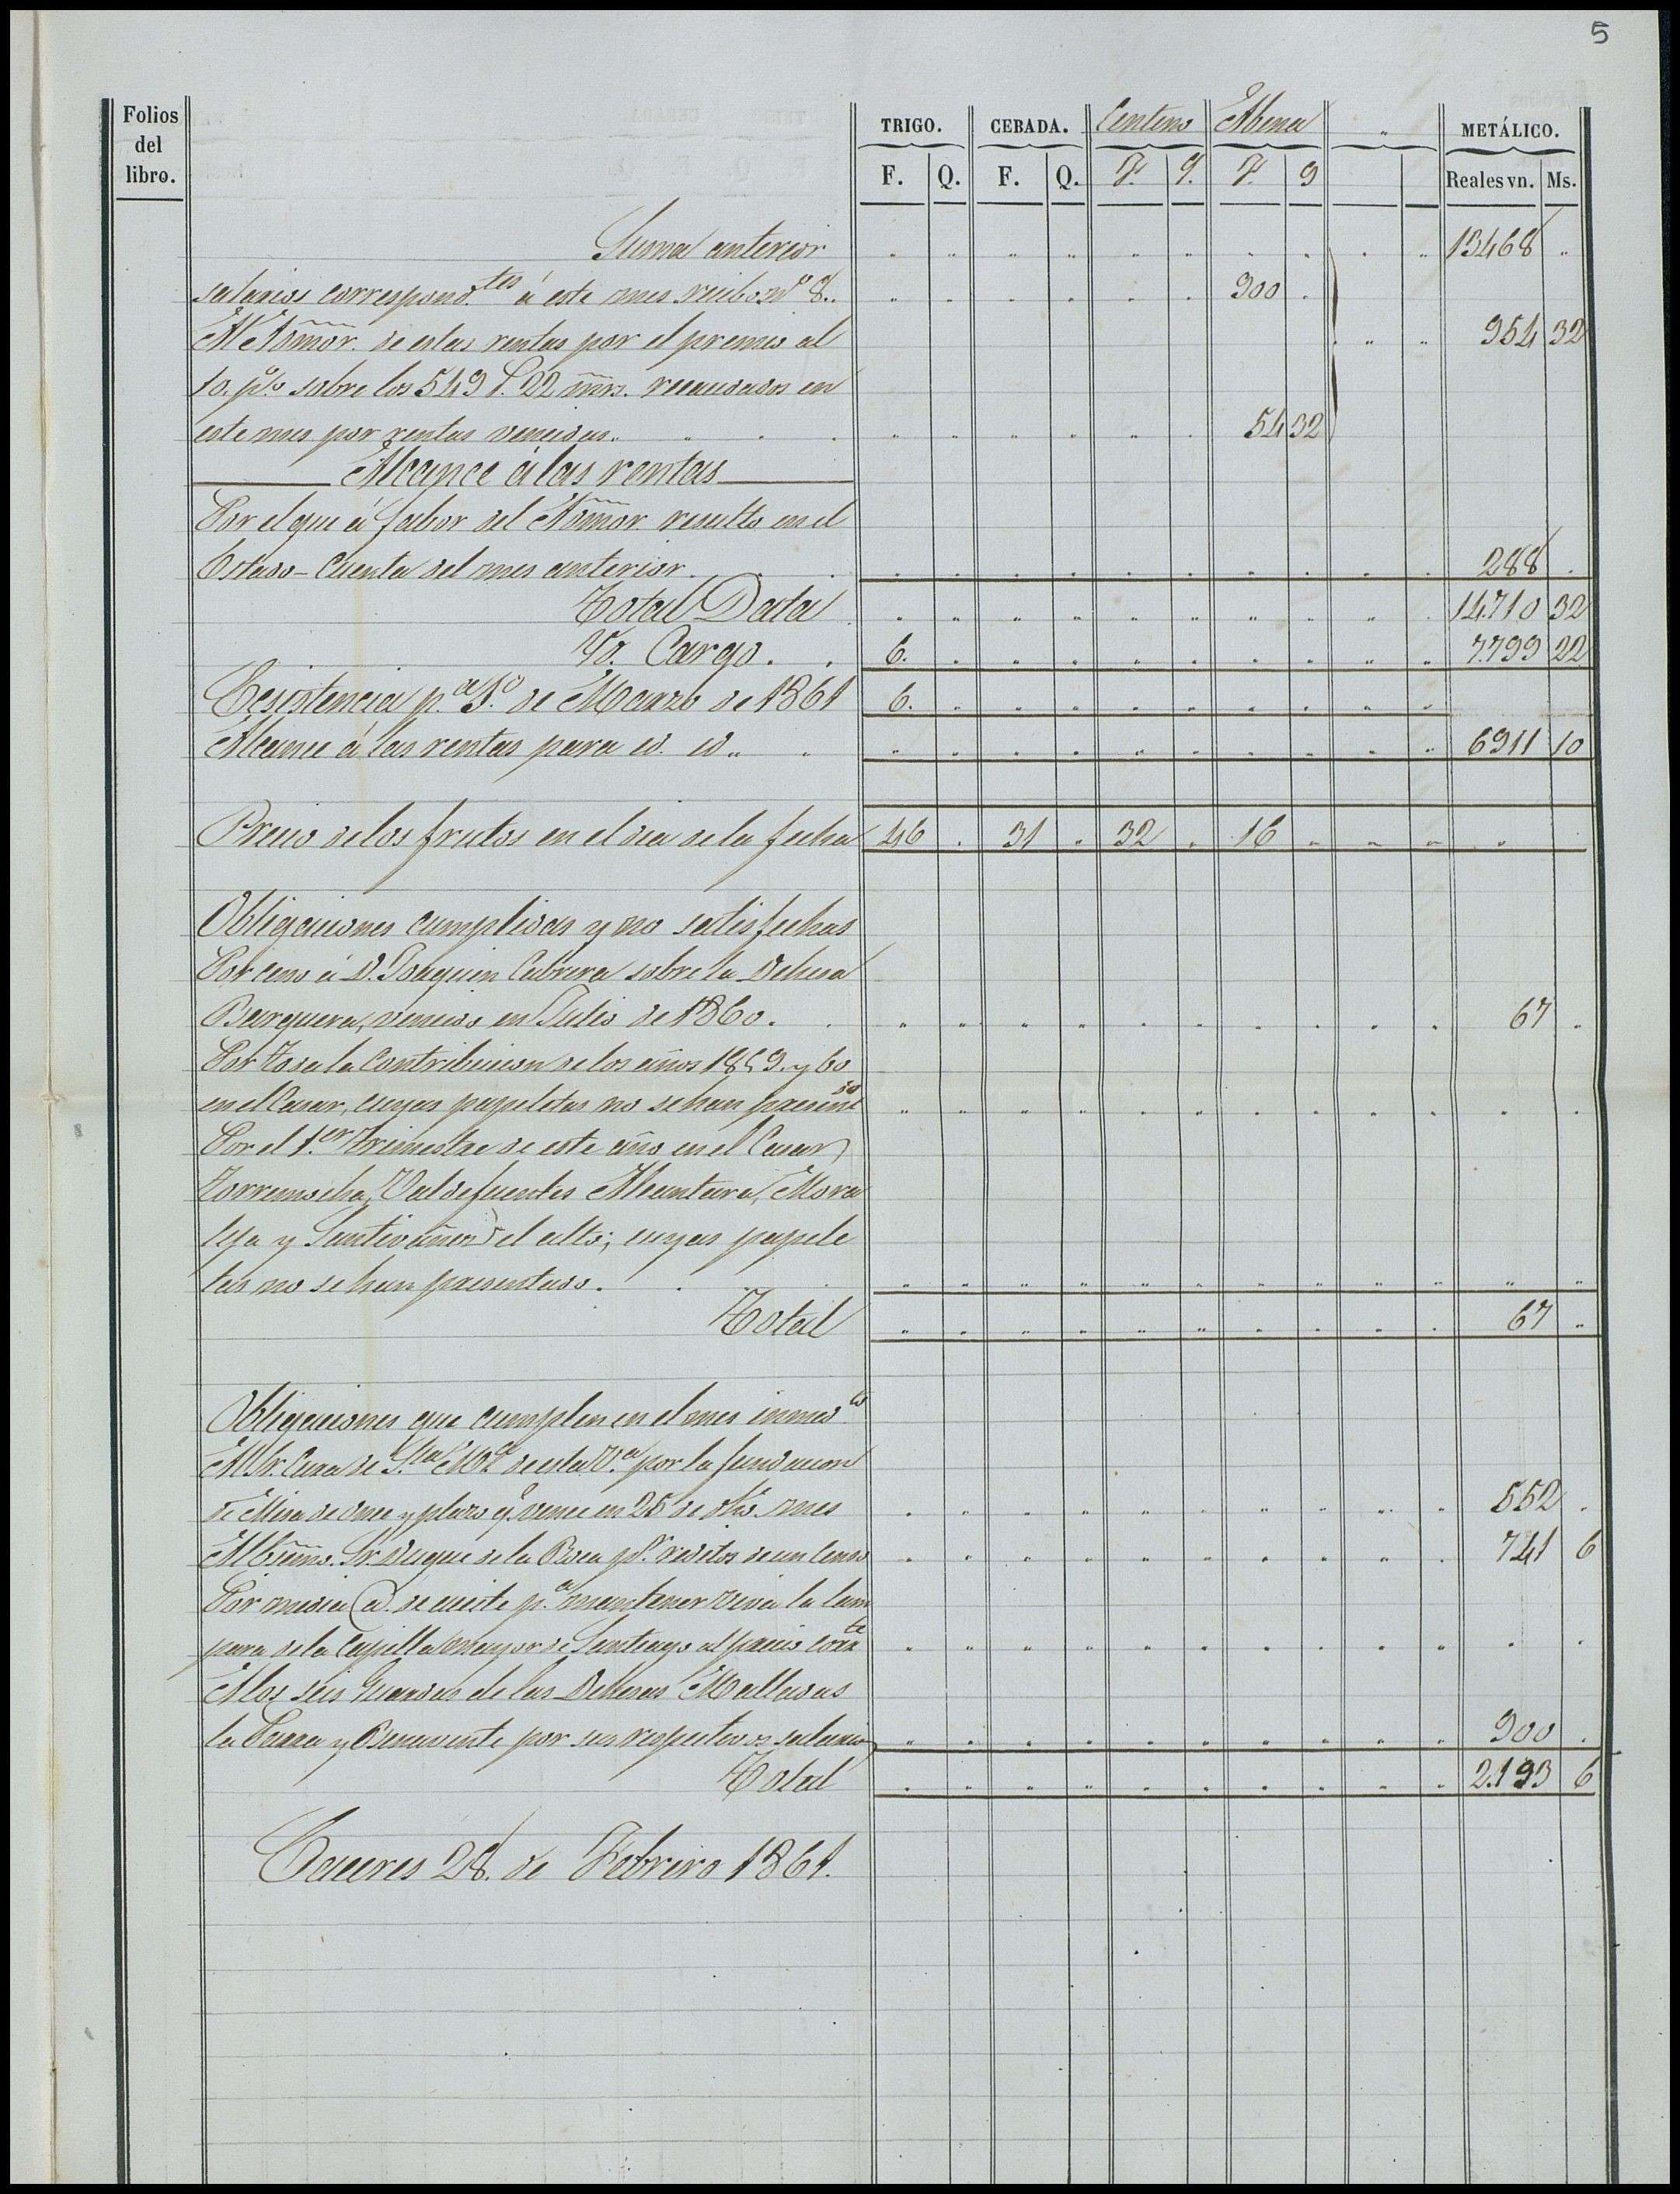 5
Folios del libro. TRIGO. CEBADA. Centeno Abena " METÁLICO.
F. Q. F. Q. F. Q. F. Q Reales vn. Ms.
Suma anterior 13468 "
salarios correspond.tes á este mes recibo nº 8.. 900 .
Al Admõr. de estas rentas por el premio al 954 32
10. p% sobre los 549 r. 22 mrs. recaudados en
este mes por rentas vencidas.. 54 32
Alcance á las rentas
Por el que á fabor del Admõr. resulto en el
Estado-Cuenta del mes anterior. 288 .
Total Data 14.710 32
Yd. Cargo. 6. 7.799 22
Ecsistencia p.ª 1º de Marzo de 1861 6.
Alcance á las rentas para id. id.. 6911 10
Precio de los frutos en el dia de la fecha 46 . 31 . 32 . 16 "
Obligaciones cumplidas y no satisfechas
Por censo á D. Joaquin Cabrera sobre la Dehesa
Barquera, vencido en Julio de 1860. 67 .
Por toda la Contribucion de los años 1859. y 60
en el Casar, cuyas papeletas no se han presentdo
Por el 1.er trimestre de este año en el Casar
Torremocha, Valdefuentes Alcantara, Mora
leja y Santivañez el alto; cuyas papele
tas no se han presentado.
Total 67 "
Obligaciones que cumplen en el mes inmedto
Al Sr. Cura de S.ta M.ª de esta V.ª por la fundacion
de Misa de once y plazo q.e vence en 25 de dho. mes 552 .
Al Excmo. Sr. Duque de la Roca p.r reditos de un Censo 741 6
Por media @. de aceite p.ª mantener viva la lam
para de la Capilla mayor de Santiago al precio corrte
A los seis Guardas de las Dehesas Malladas
la Parra y Benavente por sus respectivos salarios 900 .
Total 2.193 6
Caceres 28. de Febrero 1861.